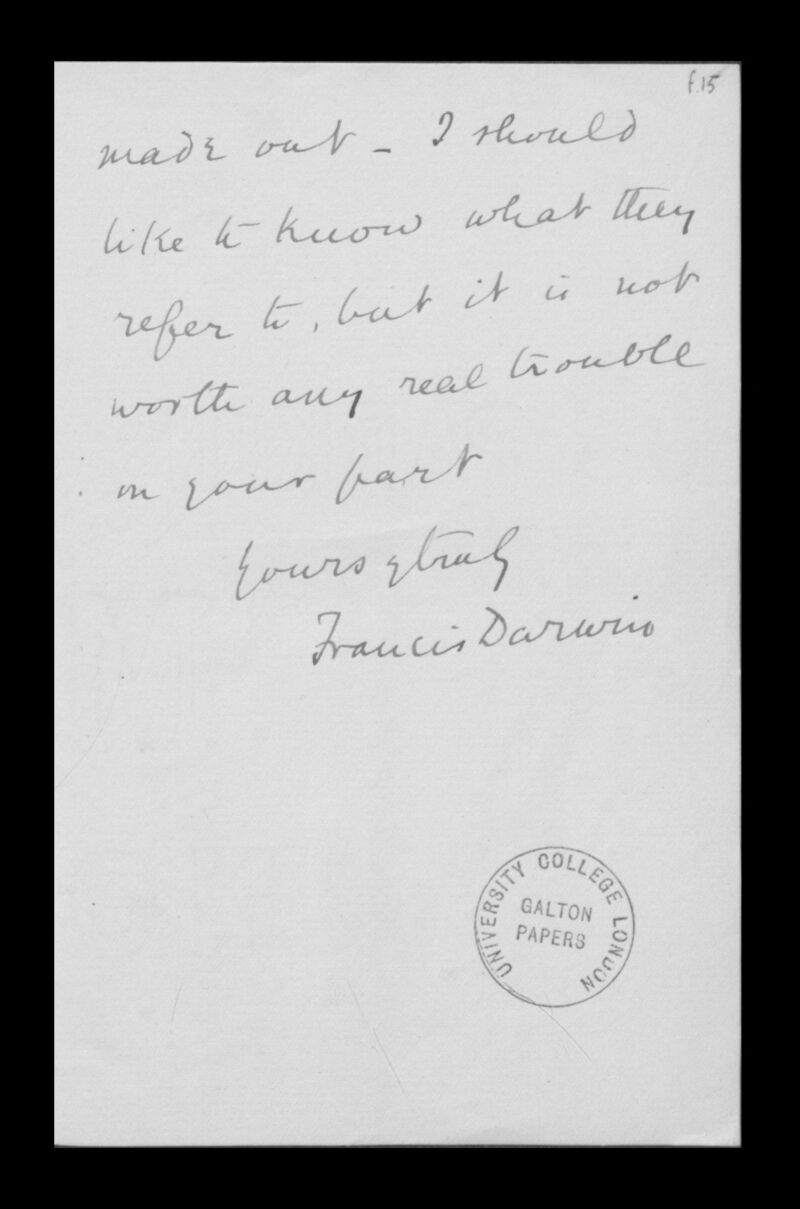 f.15
made out – I should
like to know what they
refer to, but it is not
worth any real trouble
on your part
Yours truly
Francis Darwin
UNIVERSITY COLLEGE LONDON
GALTON
PAPERS